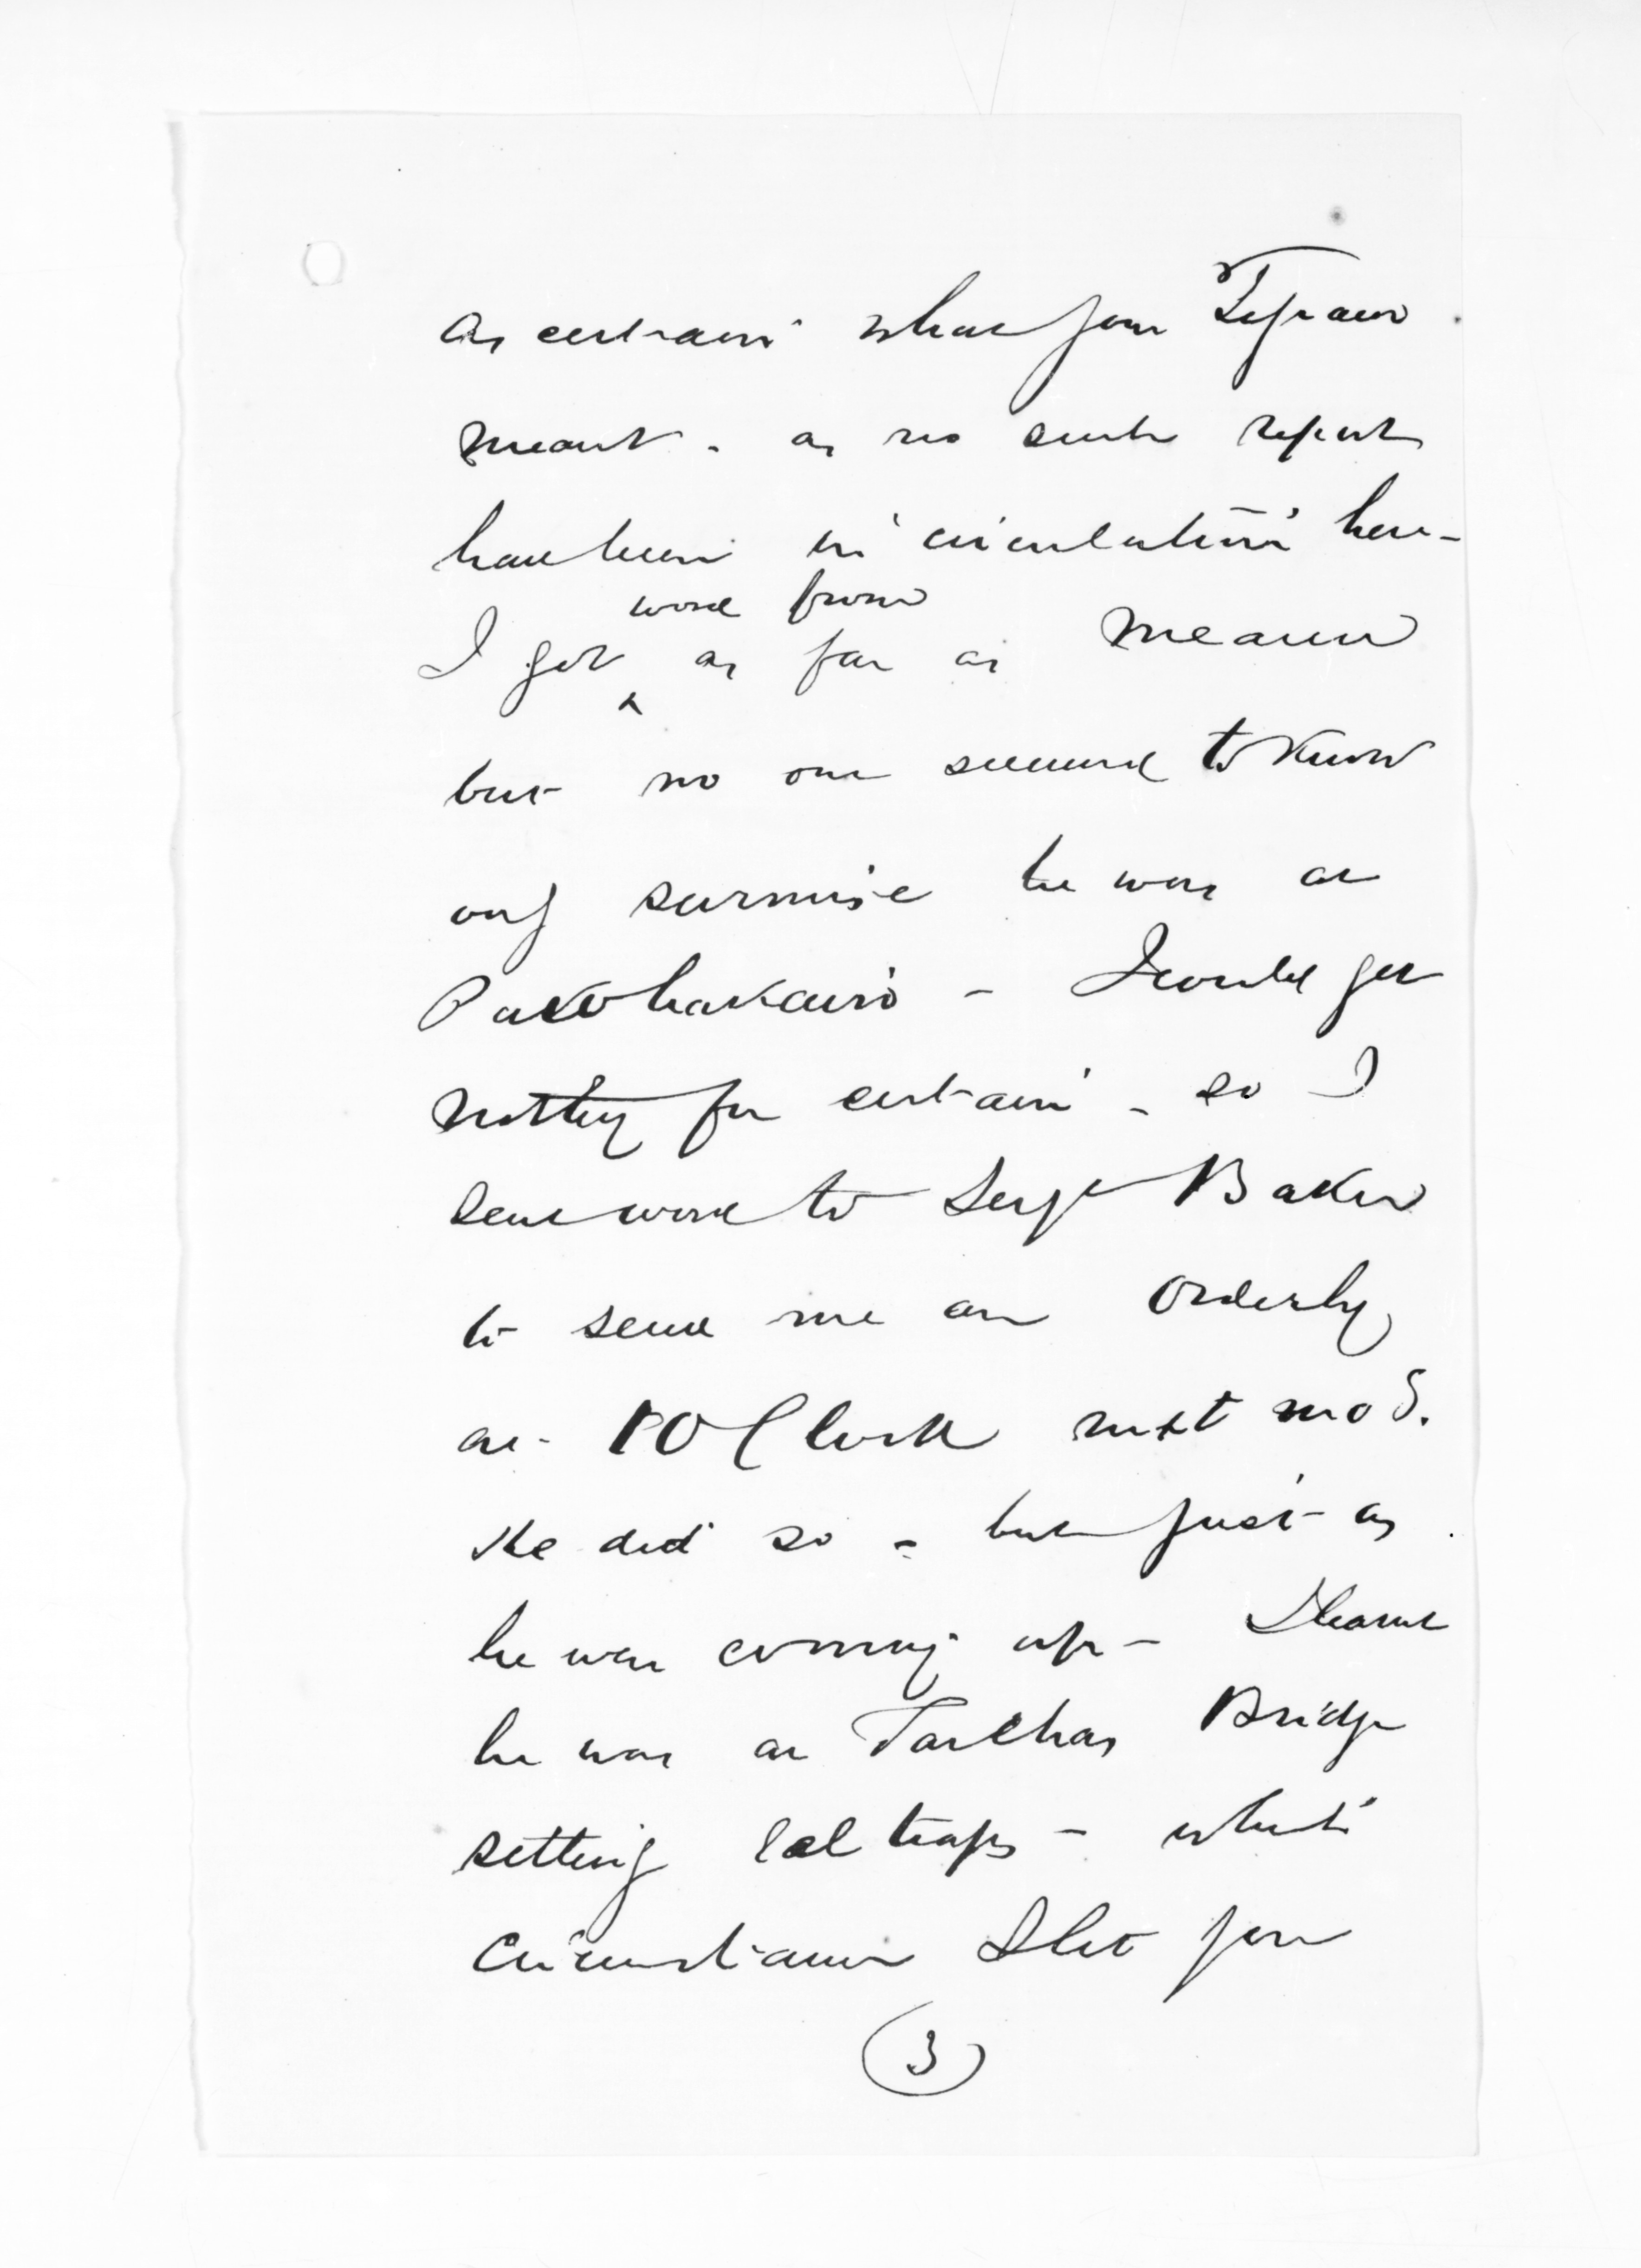 ascertain what your Telegram
meant - as no such reports
have been in circulation here -
word from
I got as far as Meanee
but no one seemed to know
only surmise he was at
Pakowhakairo - I could get
nothing for certain - so I
sent word to Sergt Baker
to send me an Orderly
at 10 Clock next mog.
He did so - but just as
he was coming up - I learnt
he was at Bridge
setting eel traps - which
Circumstance I let you
3